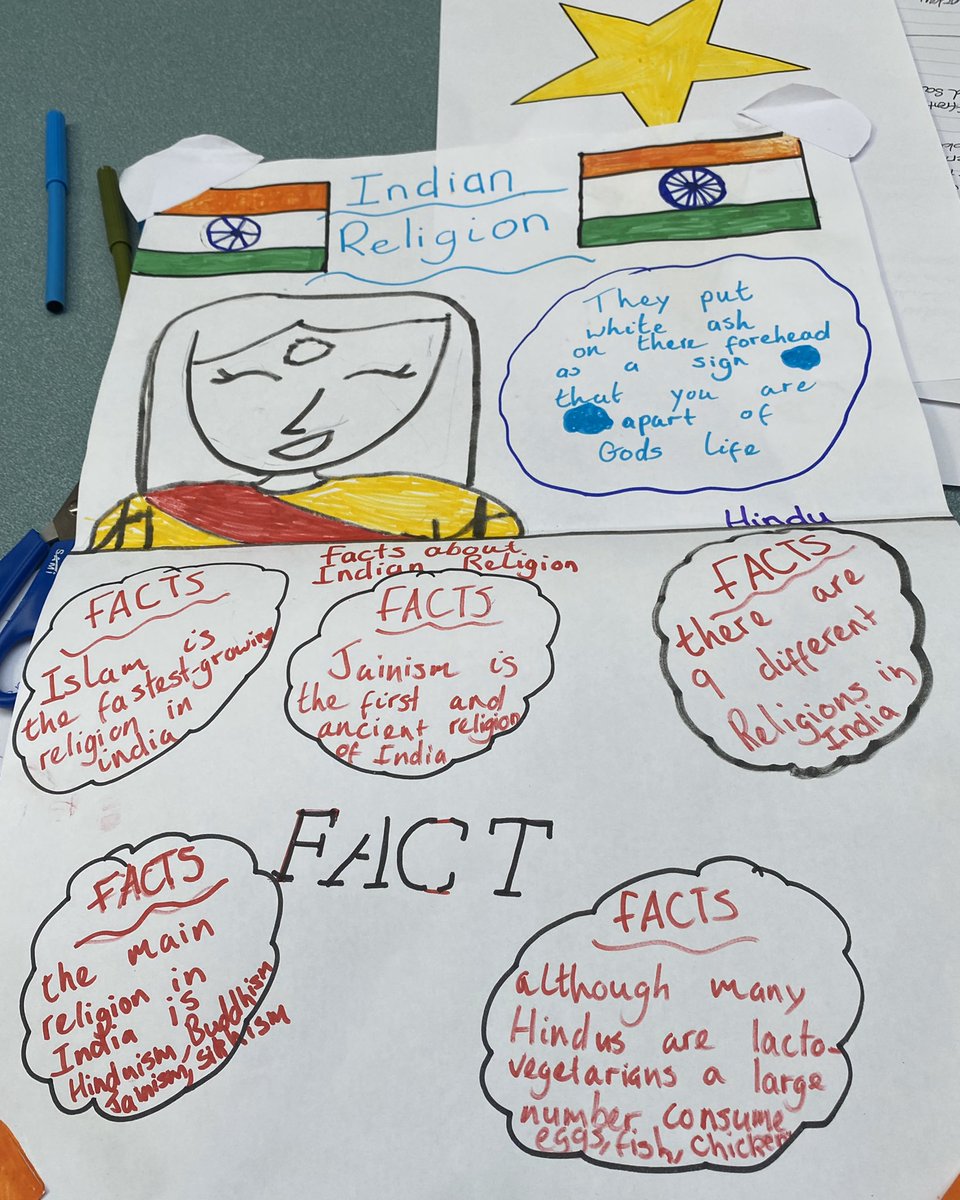 Indian
Religion
They put
white ash
on there forehead
as a sign
that you are
apart of
Gods life
Hindu
Facts about
Indian Religion
FACTS
Islam is
the fastest-growing
religion in
india
FACTS
Jainism is
the first and
ancient religion
of India
FACTS
there are
9 different
Religions in
India
FACT
FACTS
the main
religion in
India is
Hinduism, Buddhism
Jainism, sikhism
FACTS
although many
Hindus are lacto-
vegetarians a large
number consume
eggs, fish, chicken
SAMI